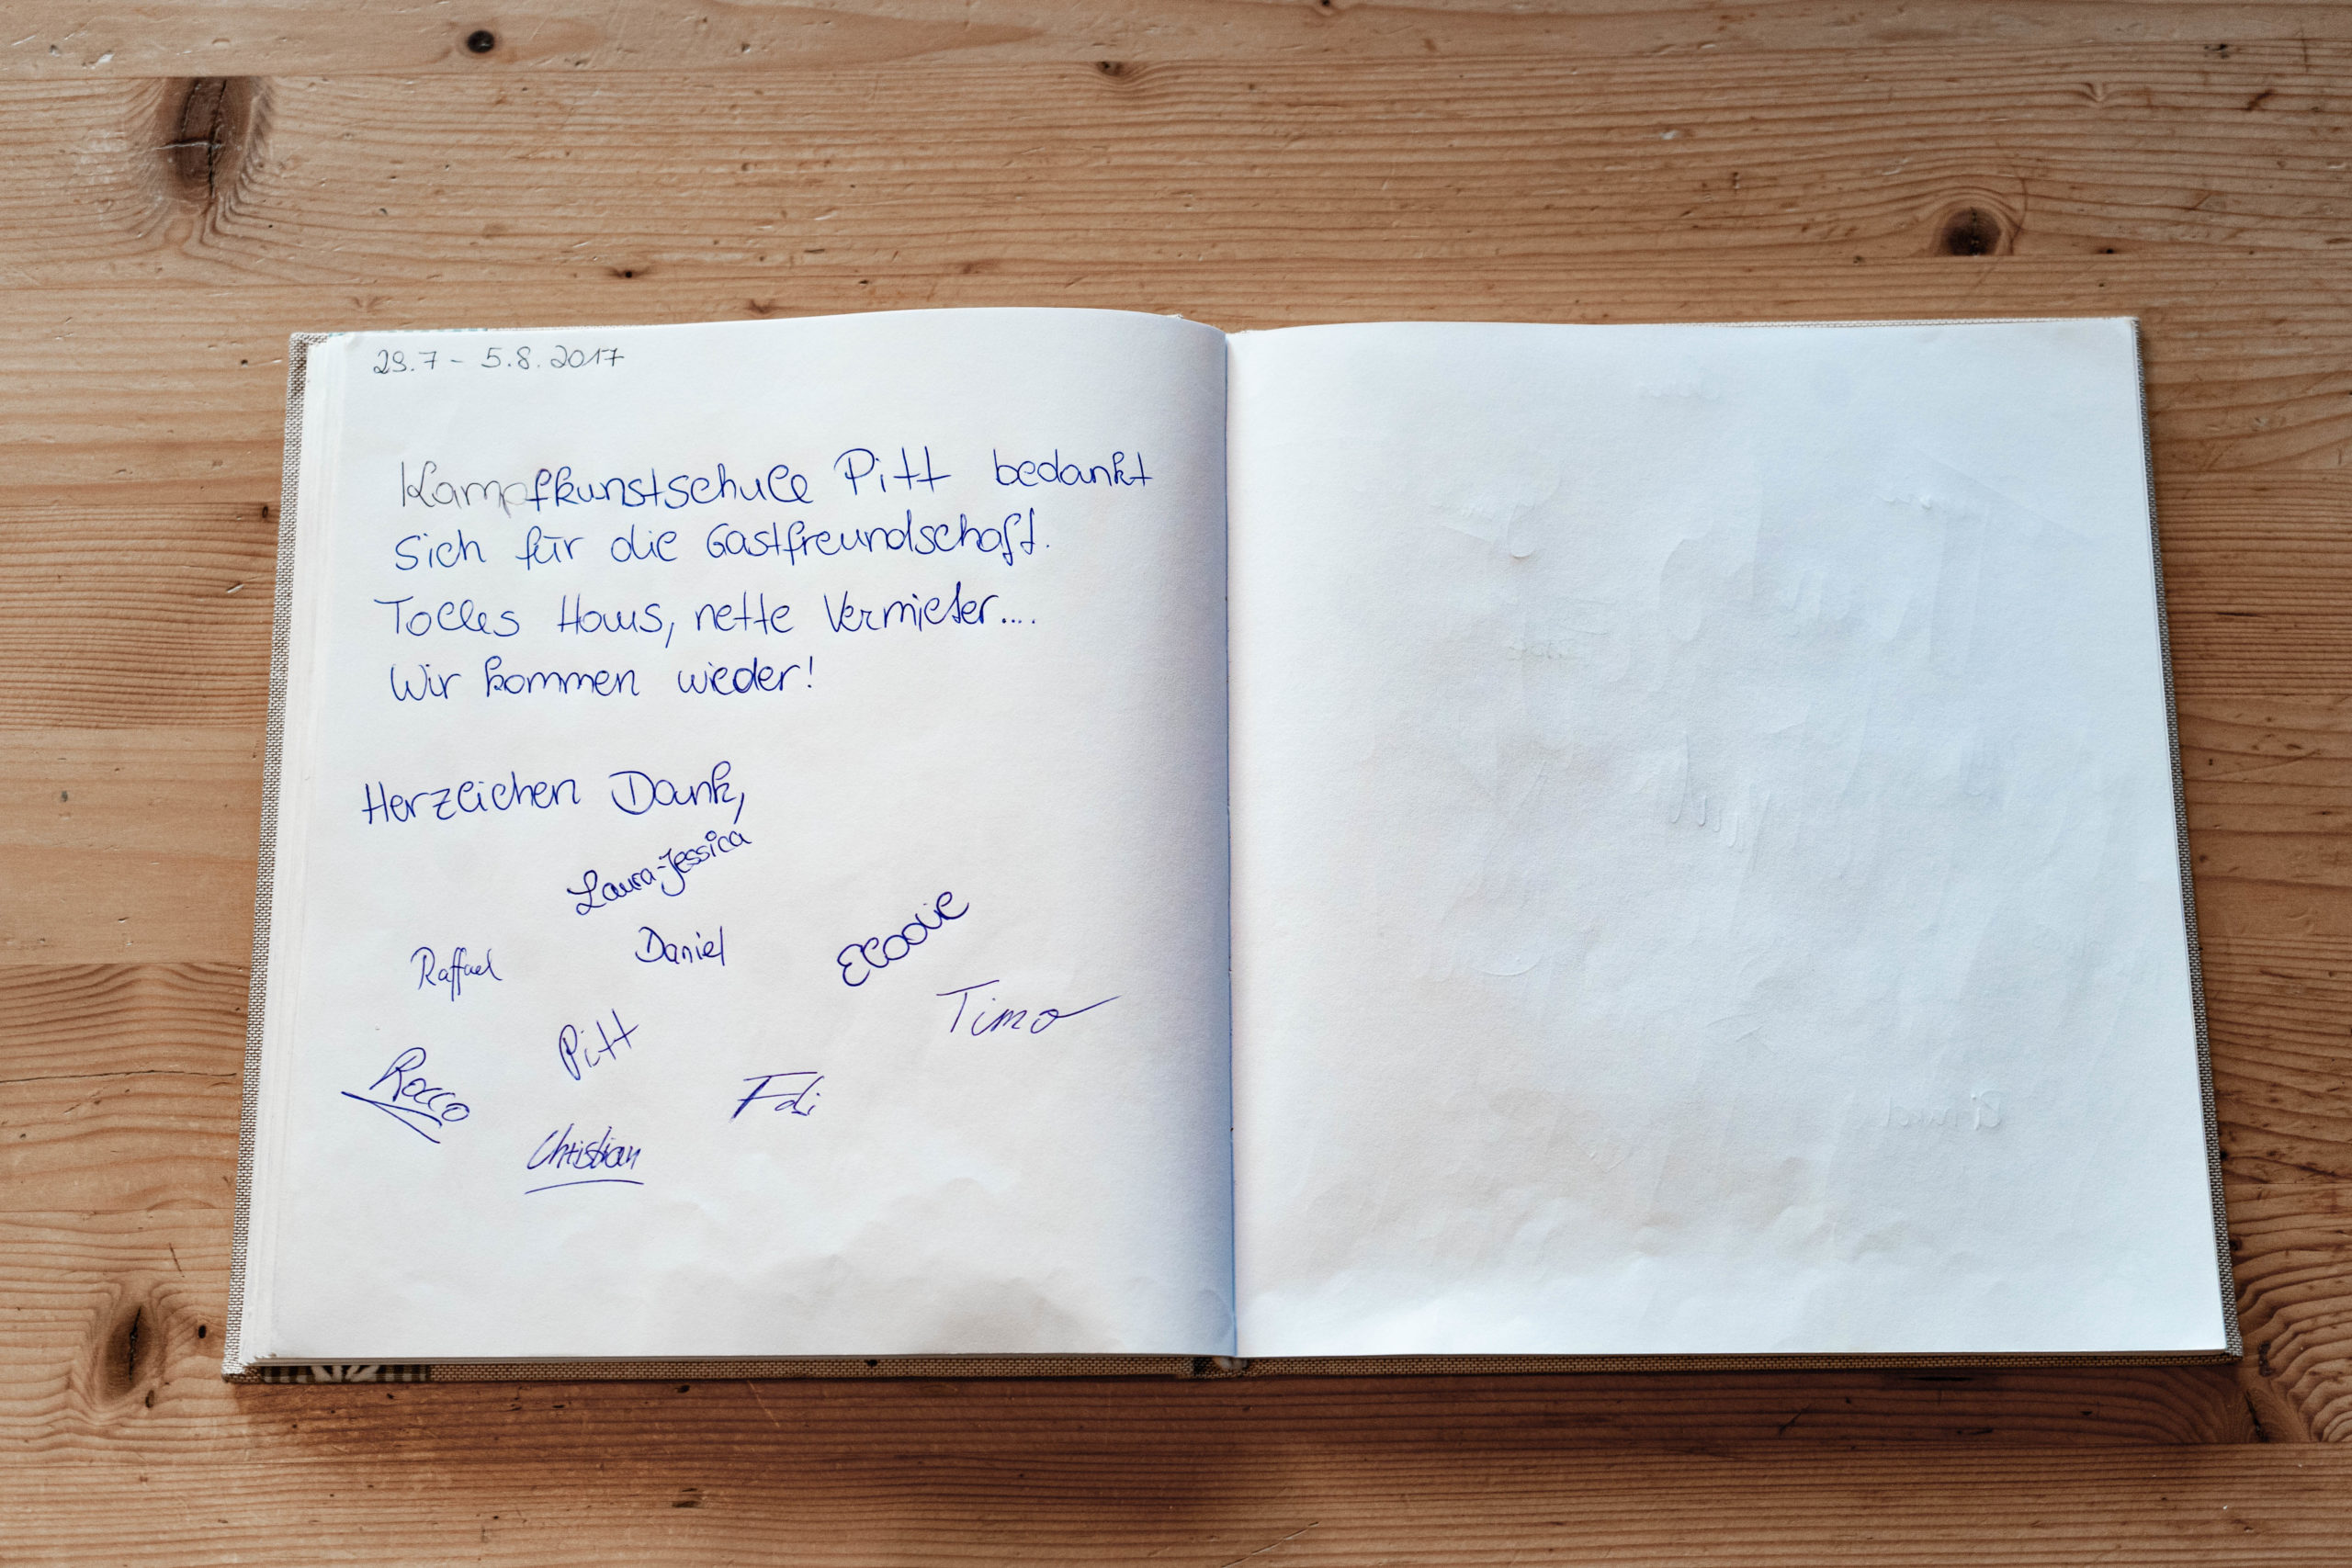 29.7 - 5.8.2017
Kampfkunstschule Pitt bedankt
sich für die Gastfreundschaft.
Tolles Haus, nette Vermieter....
Wir kommen wieder!
Herzlichen Dank,
Laura-Jessica
Raffael
Daniel
Elodie
Timo
Pitt
Rocco
Christian